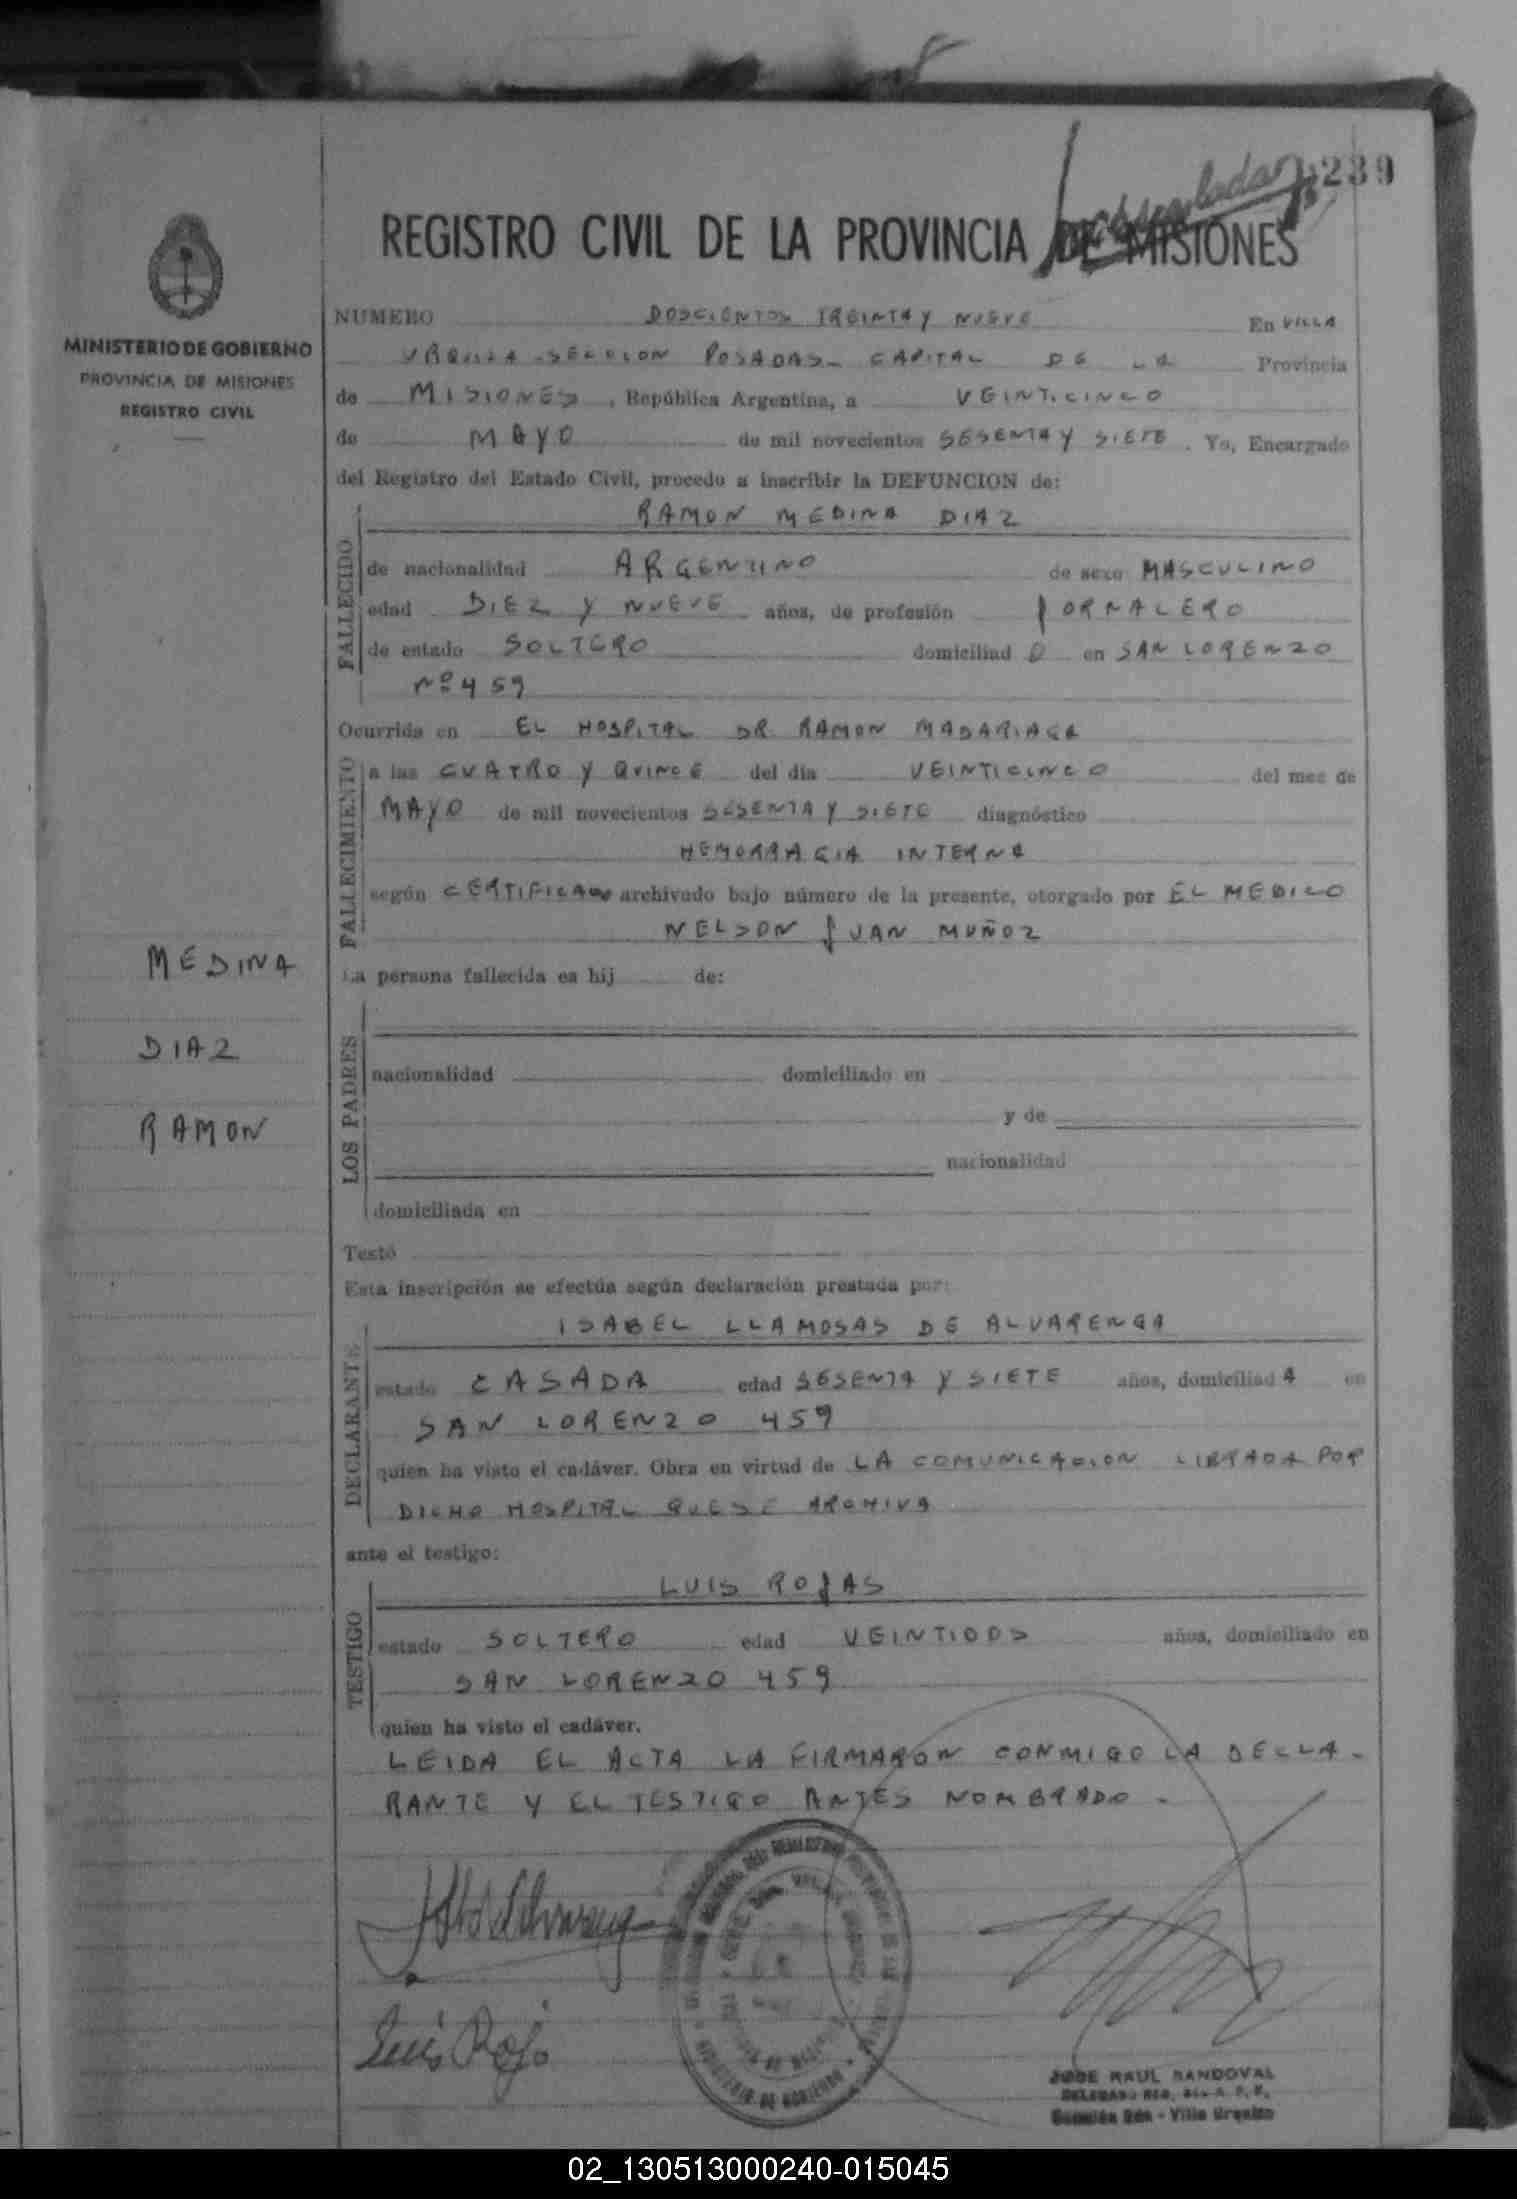 239
REGISTRO CIVIL DE LA PROVINCIA DE MISIONES
MINISTERIO DE GOBIERNO
PROVINCIA DE MISIONES
REGISTRO CIVIL
NUMERO DOSCIENTOS TREINTA Y NUEVE En VILLA
URQUIZA - SECCION POSADAS - CAPITAL DE LA Provincia
de MISIONES, República Argentina, a VEINTICINCO
de MAYO de mil novecientos SESENTA Y SIETE. Yo, Encargado
del Registro del Estado Civil, procedo a inscribir la DEFUNCION de:
RAMON MEDINA DIAZ
FALLECIDO
de nacionalidad ARGENTINO de sexo MASCULINO
edad DIEZ Y NUEVE años, de profesión JORNALERO
de estado SOLTERO domiciliad O en SAN LORENZO
Nº 459
Ocurrida en EL HOSPITAL DR. RAMON MADARIAGA
FALLECIMIENTO
a las CUATRO Y QUINCE del día VEINTICINCO del mes de
MAYO de mil novecientos SESENTA Y SIETE diagnóstico
HEMORRAGIA INTERNA
según CERTIFICADO archivado bajo número de la presente, otorgado por EL MEDICO
NELSON JUAN MUÑOZ
La persona fallecida es hij de:
MEDINA
DIAZ
RAMON
LOS PADRES
nacionalidad domiciliado en
y de
nacionalidad
domiciliada en
Testó
Esta inscripción se efectúa según declaración prestada por:
ISABEL LLAMOSAS DE ALVARENGA
DECLARANTE
estado CASADA edad SESENTA Y SIETE años, domiciliad A en
SAN LORENZO 459
quien ha visto el cadáver. Obra en virtud de LA COMUNICACION LIBRADA POR
DICHO HOSPITAL QUE SE ARCHIVA
ante el testigo:
LUIS ROJAS
TESTIGO
estado SOLTERO edad VEINTIDOS años, domiciliado en
SAN LORENZO 459
quien ha visto el cadáver.
LEIDA EL ACTA LA FIRMARON CONMIGO LA DECLA-
RANTE Y EL TESTIGO ANTES NOMBRADO.
Luis Rojo
MINISTERIO DE GOBIERNO
JOSE RAUL SANDOVAL
Sección 2da - Villa Urquiza
02_130513000240-015045